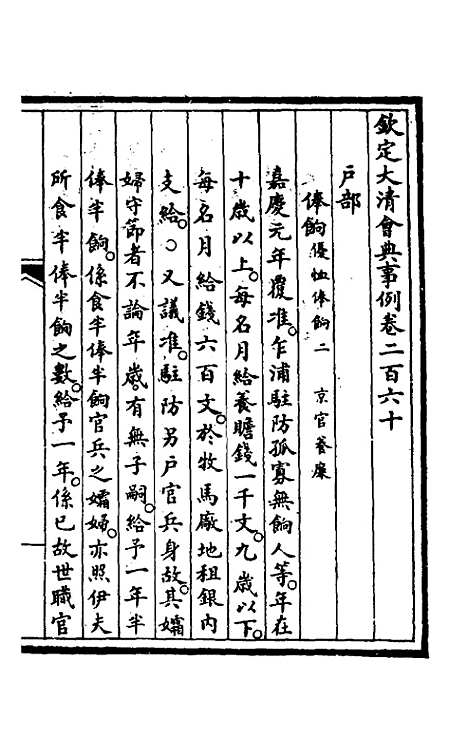 欽定大清會典事例卷二百六十
戶部
俸餉優恤俸餉二　京官養廉
嘉慶元年覆准。乍浦駐防孤寡無餉人等。年在
十歲以上。每名月給養贍錢一千文。九歲以下。
每名月給錢六百文。於牧馬廠地租銀內
支給。○又議准。駐防另戶官兵身故。其孀
婦守節者不論年歲。有無子嗣。給予一年半
俸半餉。係食半俸半餉官兵之孀婦。亦照伊夫
所食半俸半餉之數。給予一年。係已故世職官